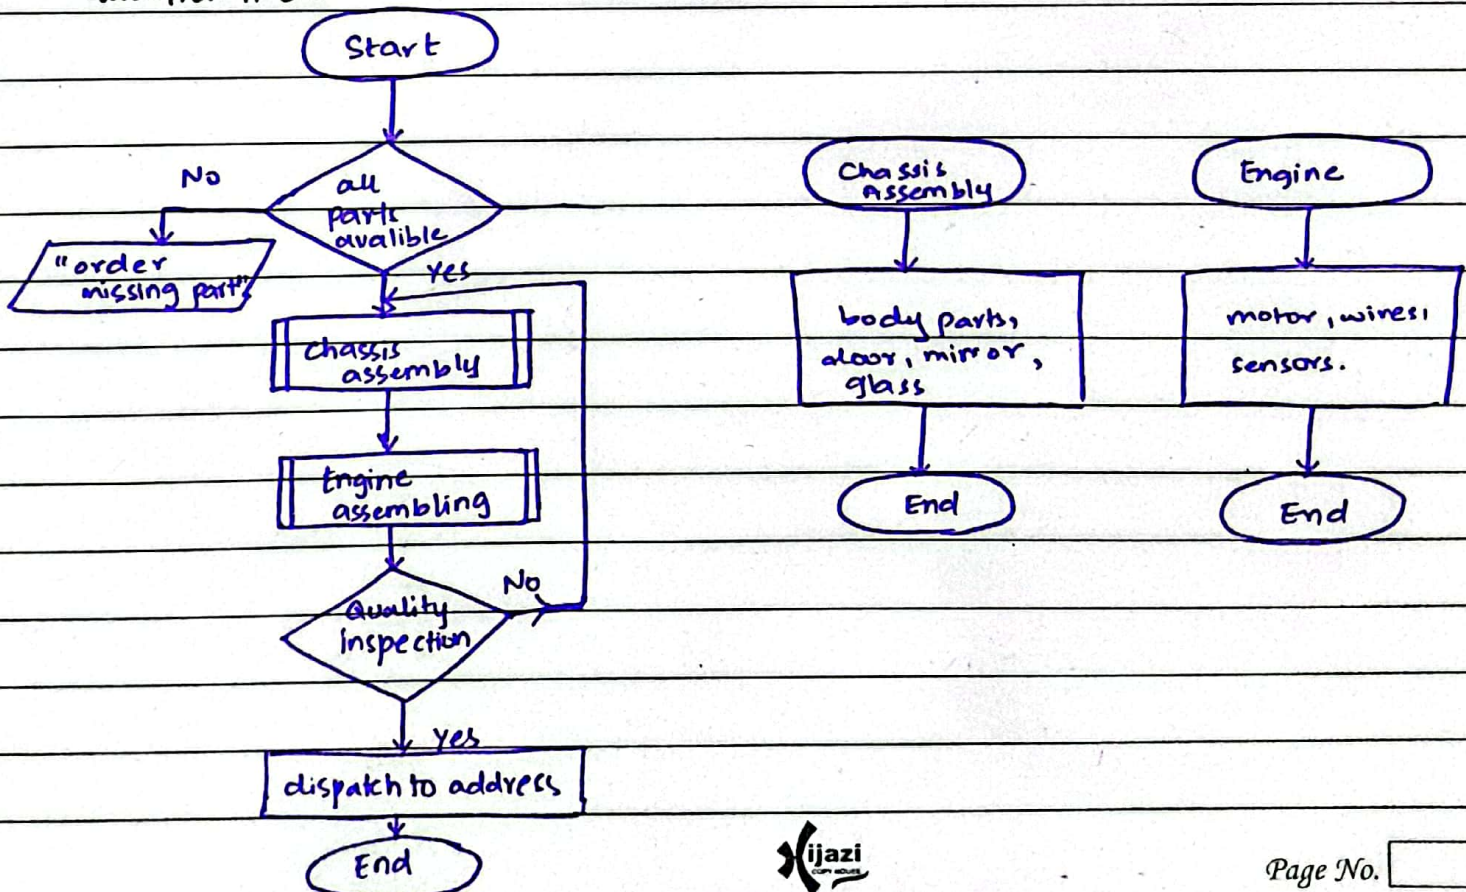 Start
No
all
parts
avalible
"order
missing part"
Yes
Chassis
assembly
Engine
assembling
No
Quality
inspection
yes
dispatch to address
End
Chassis
Assembly
body parts,
door, mirror,
glass
End
Engine
motor, wires,
sensors.
End
Hijazi
COPY HOUSE
Page No.